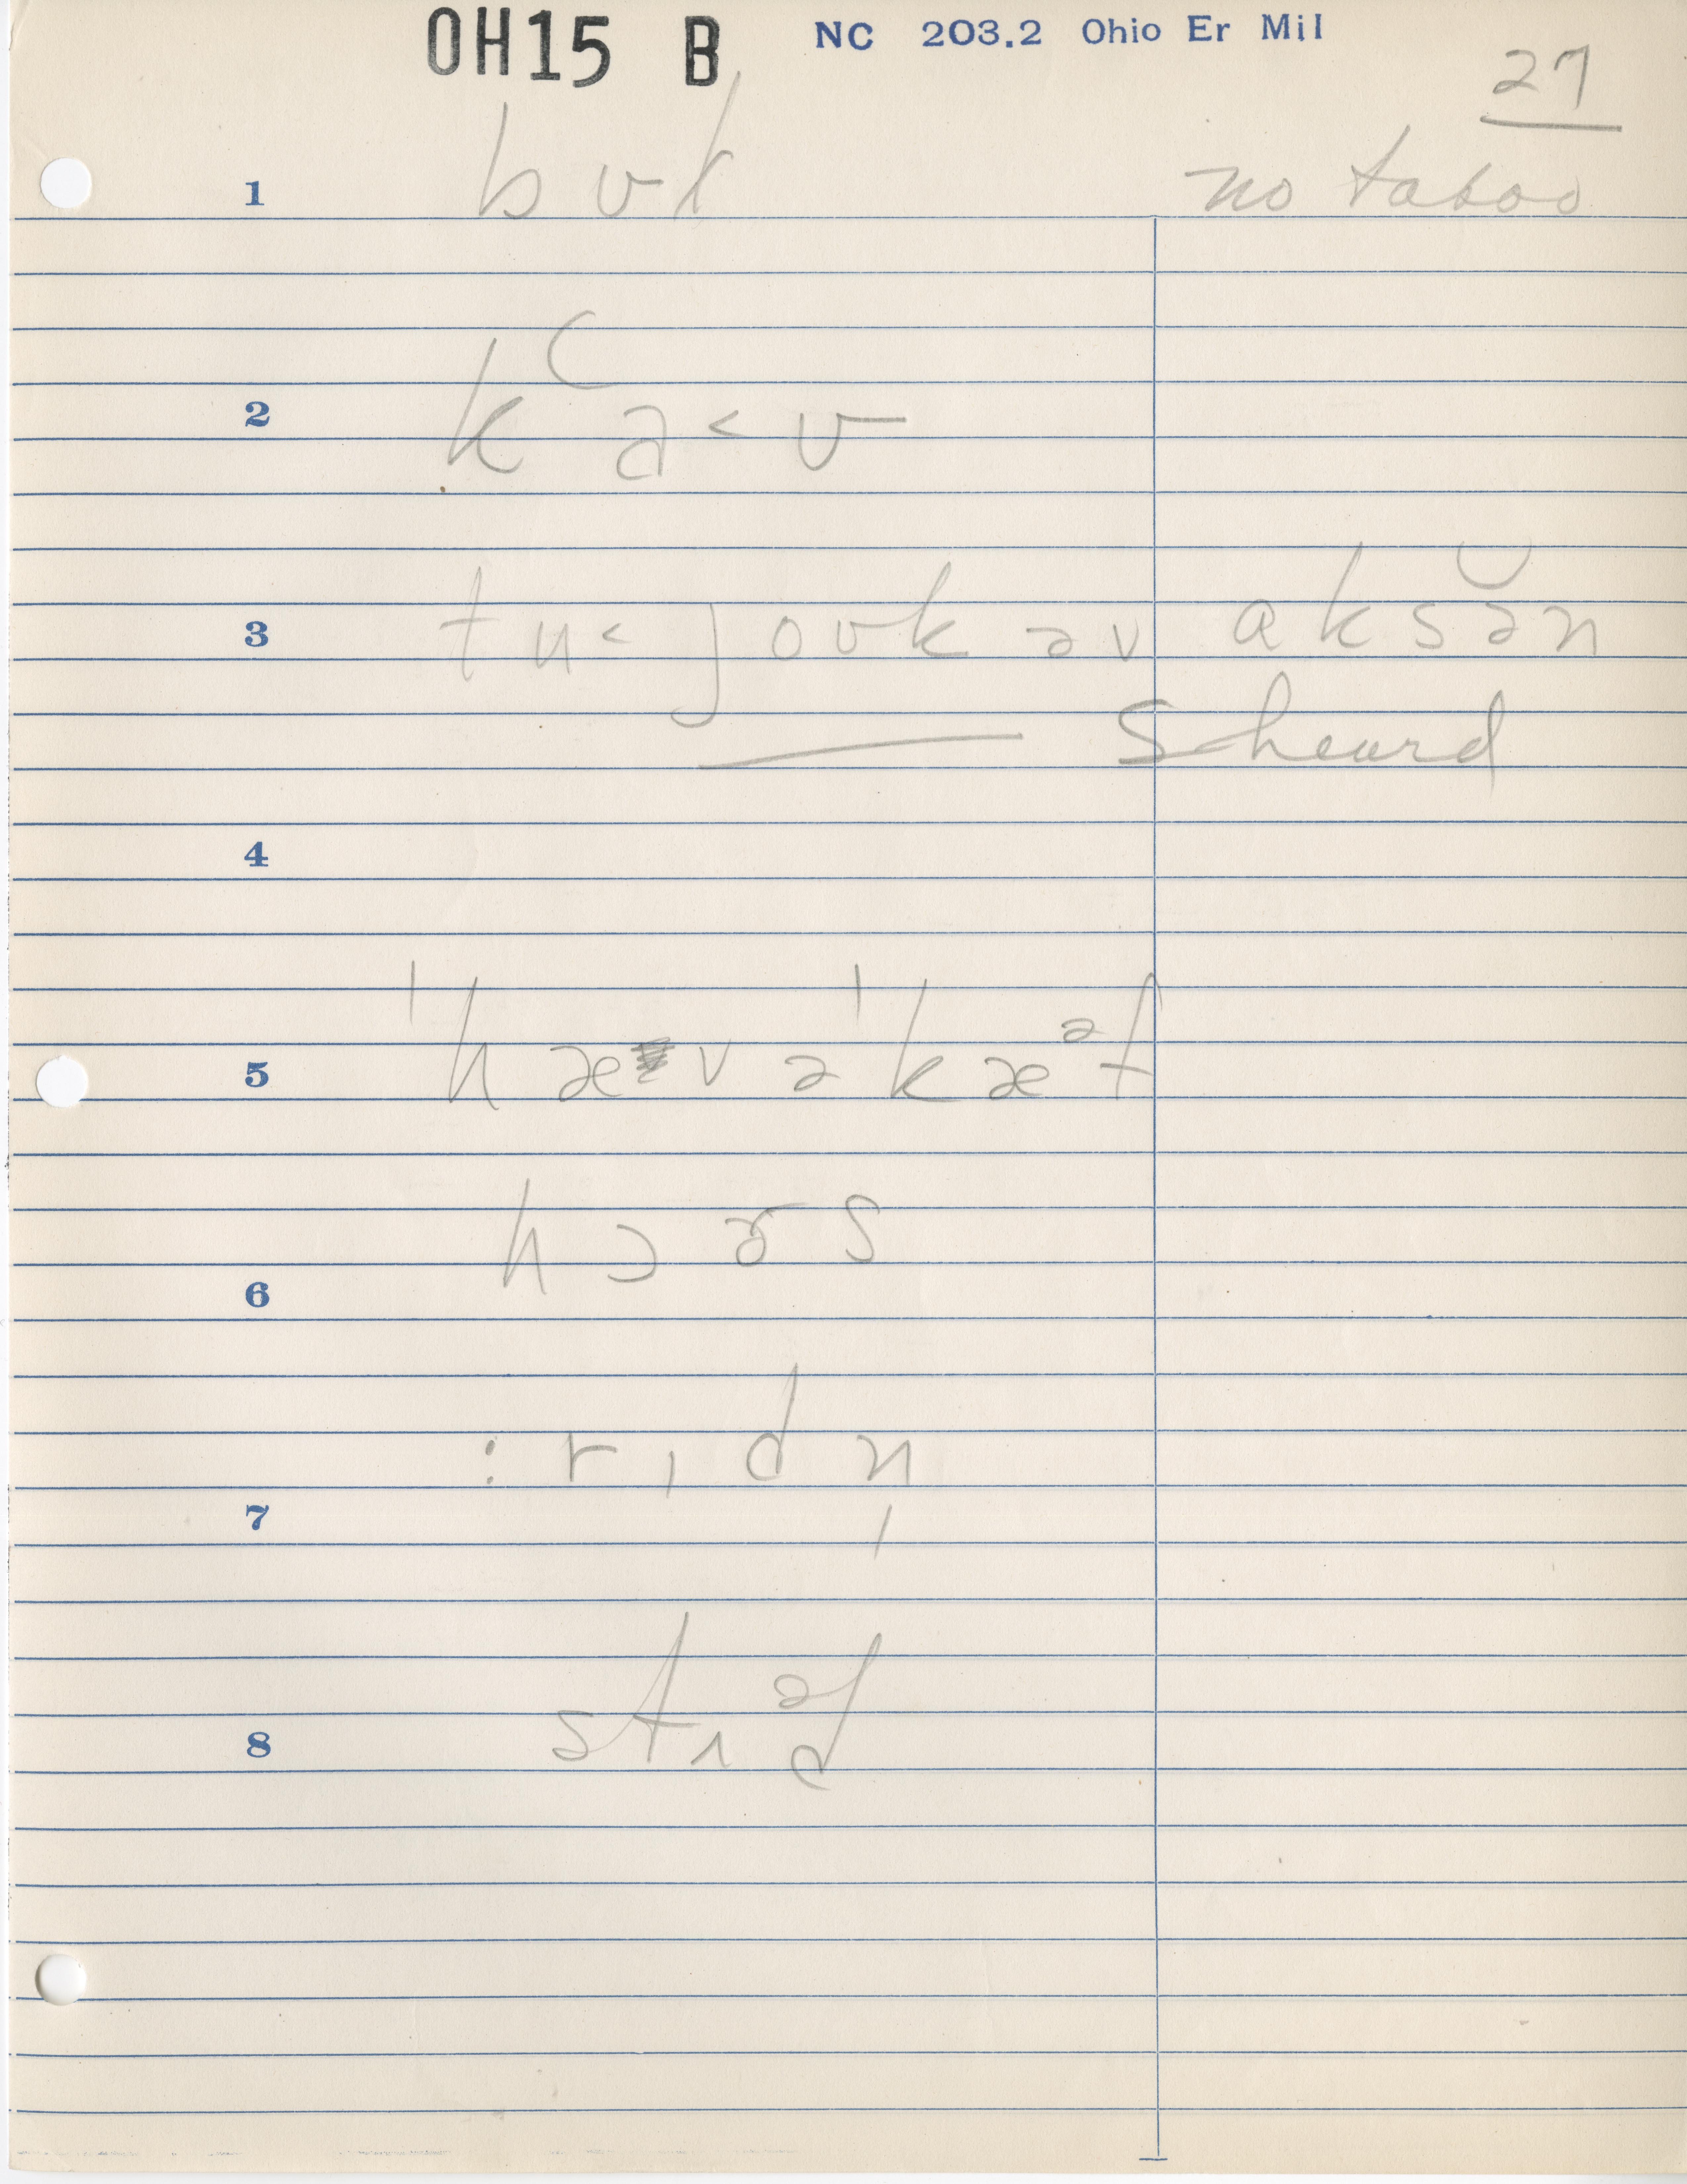 OH15 B NC 203.2 Ohio Er Mil
27
1 bʊl no taboo
2 kʿa˂ʊ
3 tu˂ joʊk əv aksə̆n
— S heard
4
5 ˈhævəˈkæᵊf
6 hɔɚs
7 : rɪdn̩
8 stɪᵊd